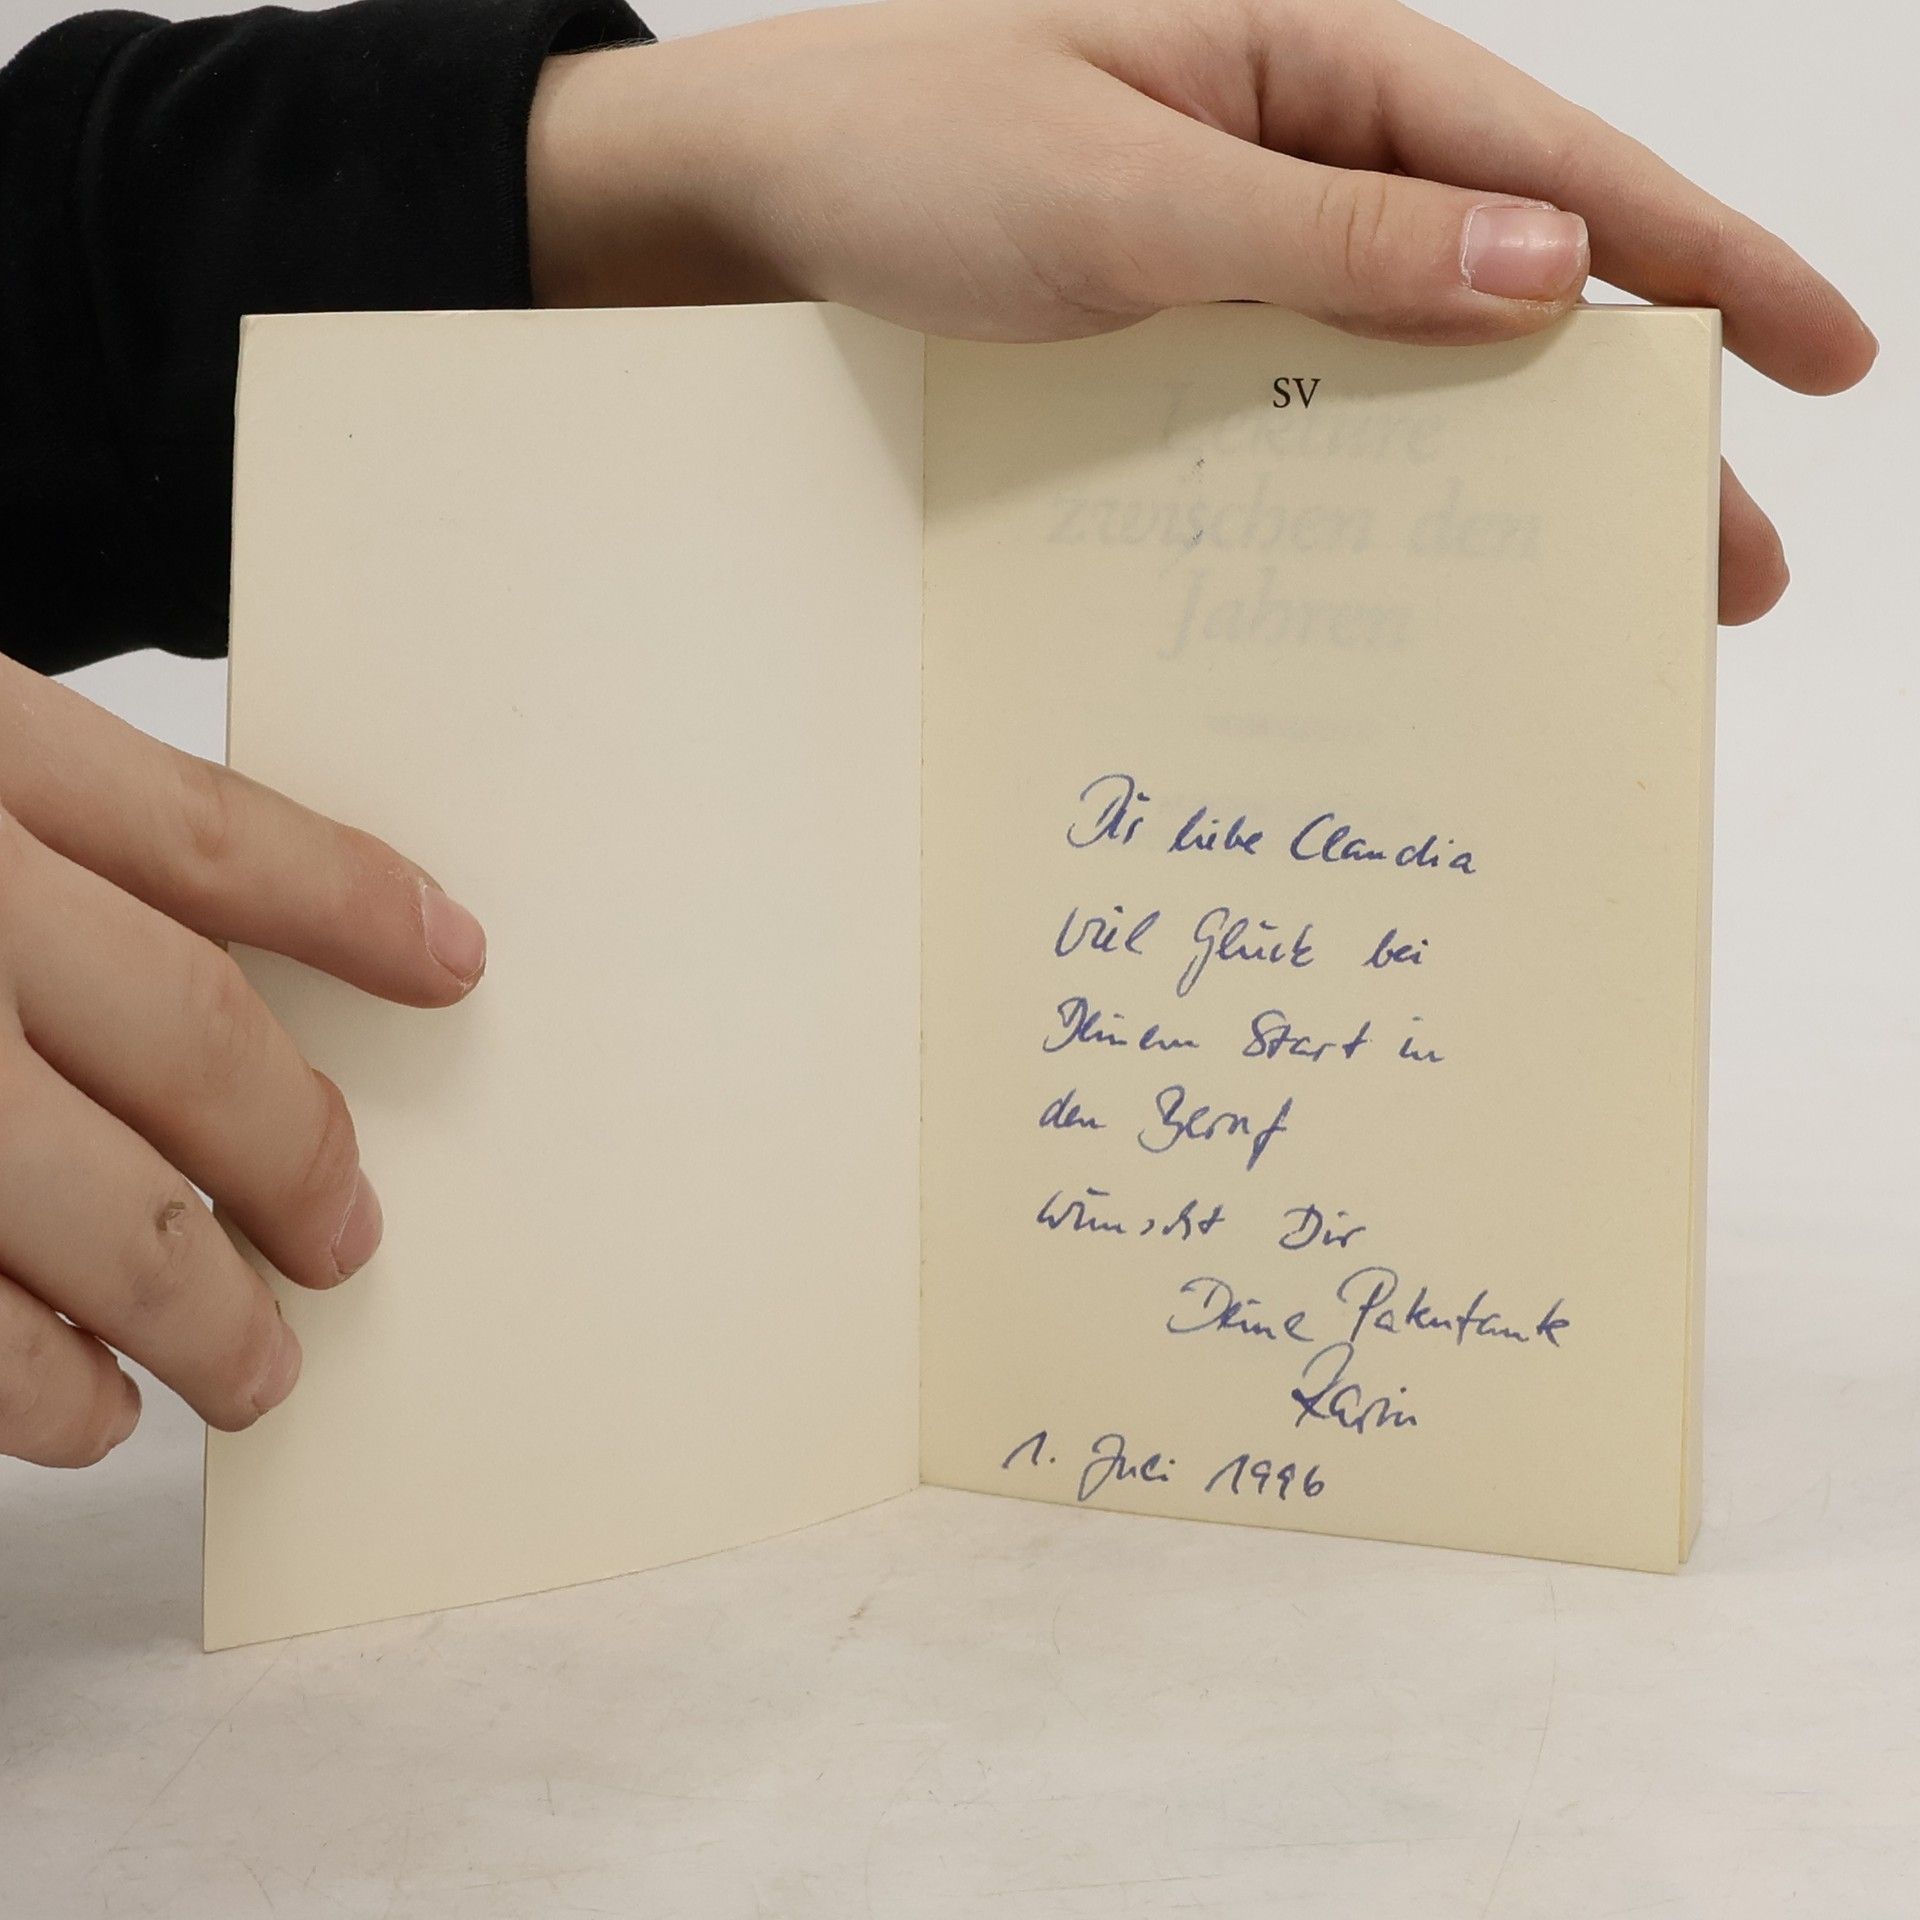 SV
Lektüre
zwischen den
Jahren
Dir liebe Claudia
Viel Glück bei
Deinem Start in
den Beruf
wünscht Dir
Deine Patentante
Karin
1. Juli 1996